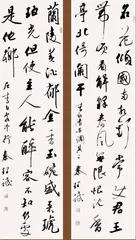 名花傾國兩相歡常得君王
帶笑看解釋春風無限恨沉香
亭北倚闌干
蘭陵美酒鬱金香玉碗盛來琥
珀光但使主人能醉客不知何處
是他鄉